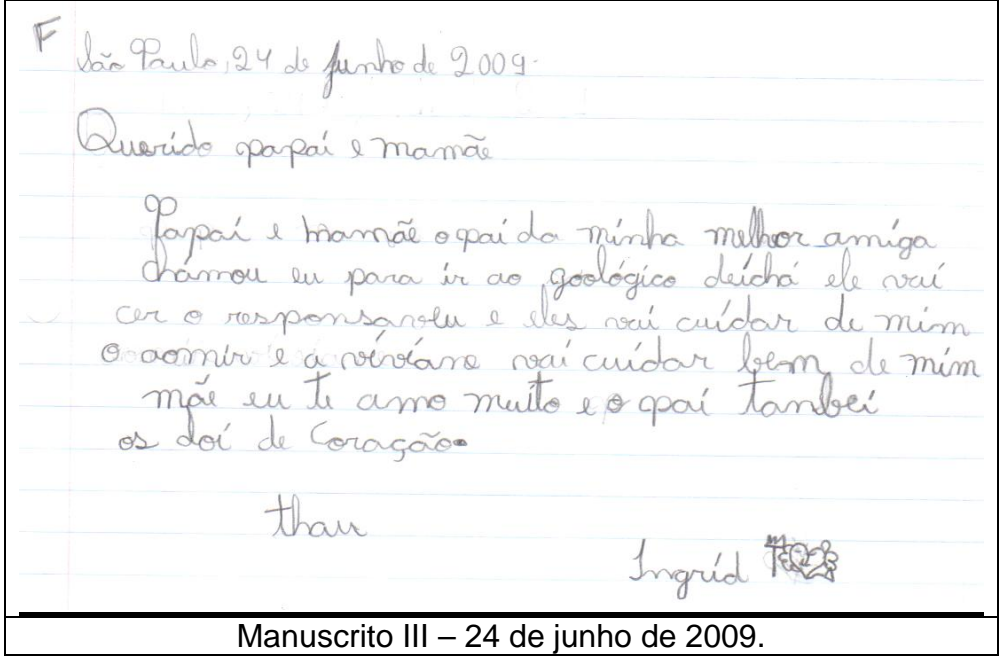 F
São Paulo, 24 de junho de 2009.
Querido papai e mamãe
Papai e mamãe o pai da minha melhor amiga
chamou eu para ir ao goológico deichá ele vai
cer o responsavelu e eles vai cuidar de mim
o aomir e a viviane vai cuidar bem de mim
mãe eu te amo muito e o pai tambei
os doi de Coração.
thau
Ingrid
Manuscrito III – 24 de junho de 2009.